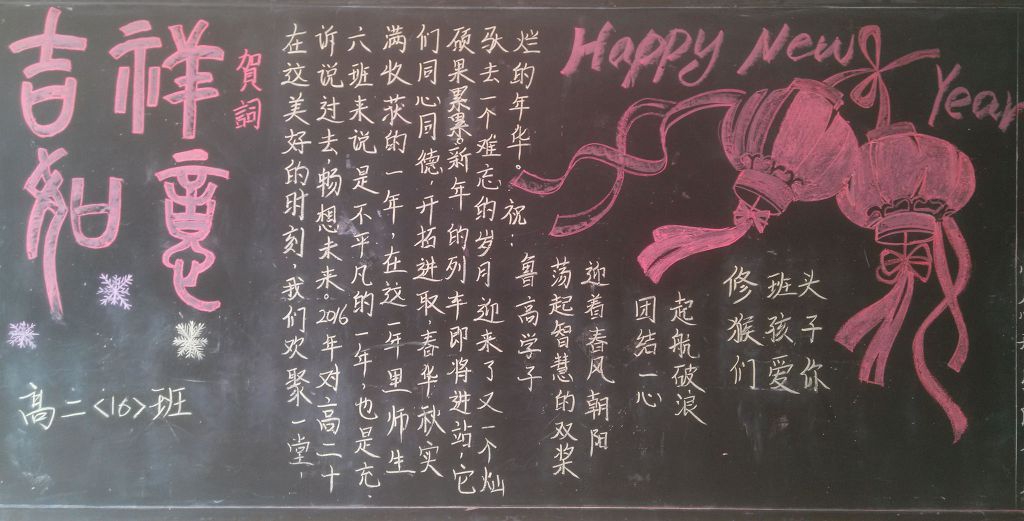 吉祥
如意
賀詞
高二<16>班
在这美好的时刻，我们欢聚一堂，
诉说过去，畅想未来。2016年对高二十
六班来说是不平凡的一年，也是充
满收获的一年，在这一年里师生
们同心同德，开拓进取，春华秋实
硕果累累。新年的列车即将进站，它
驮去一个难忘的岁月 迎来了又一个灿
烂的年华。祝：
鲁高学子
荡起智慧的双桨
迎着春风朝阳
团结一心
起航破浪
修班头
猴孩子
们爱你
Happy New
Year